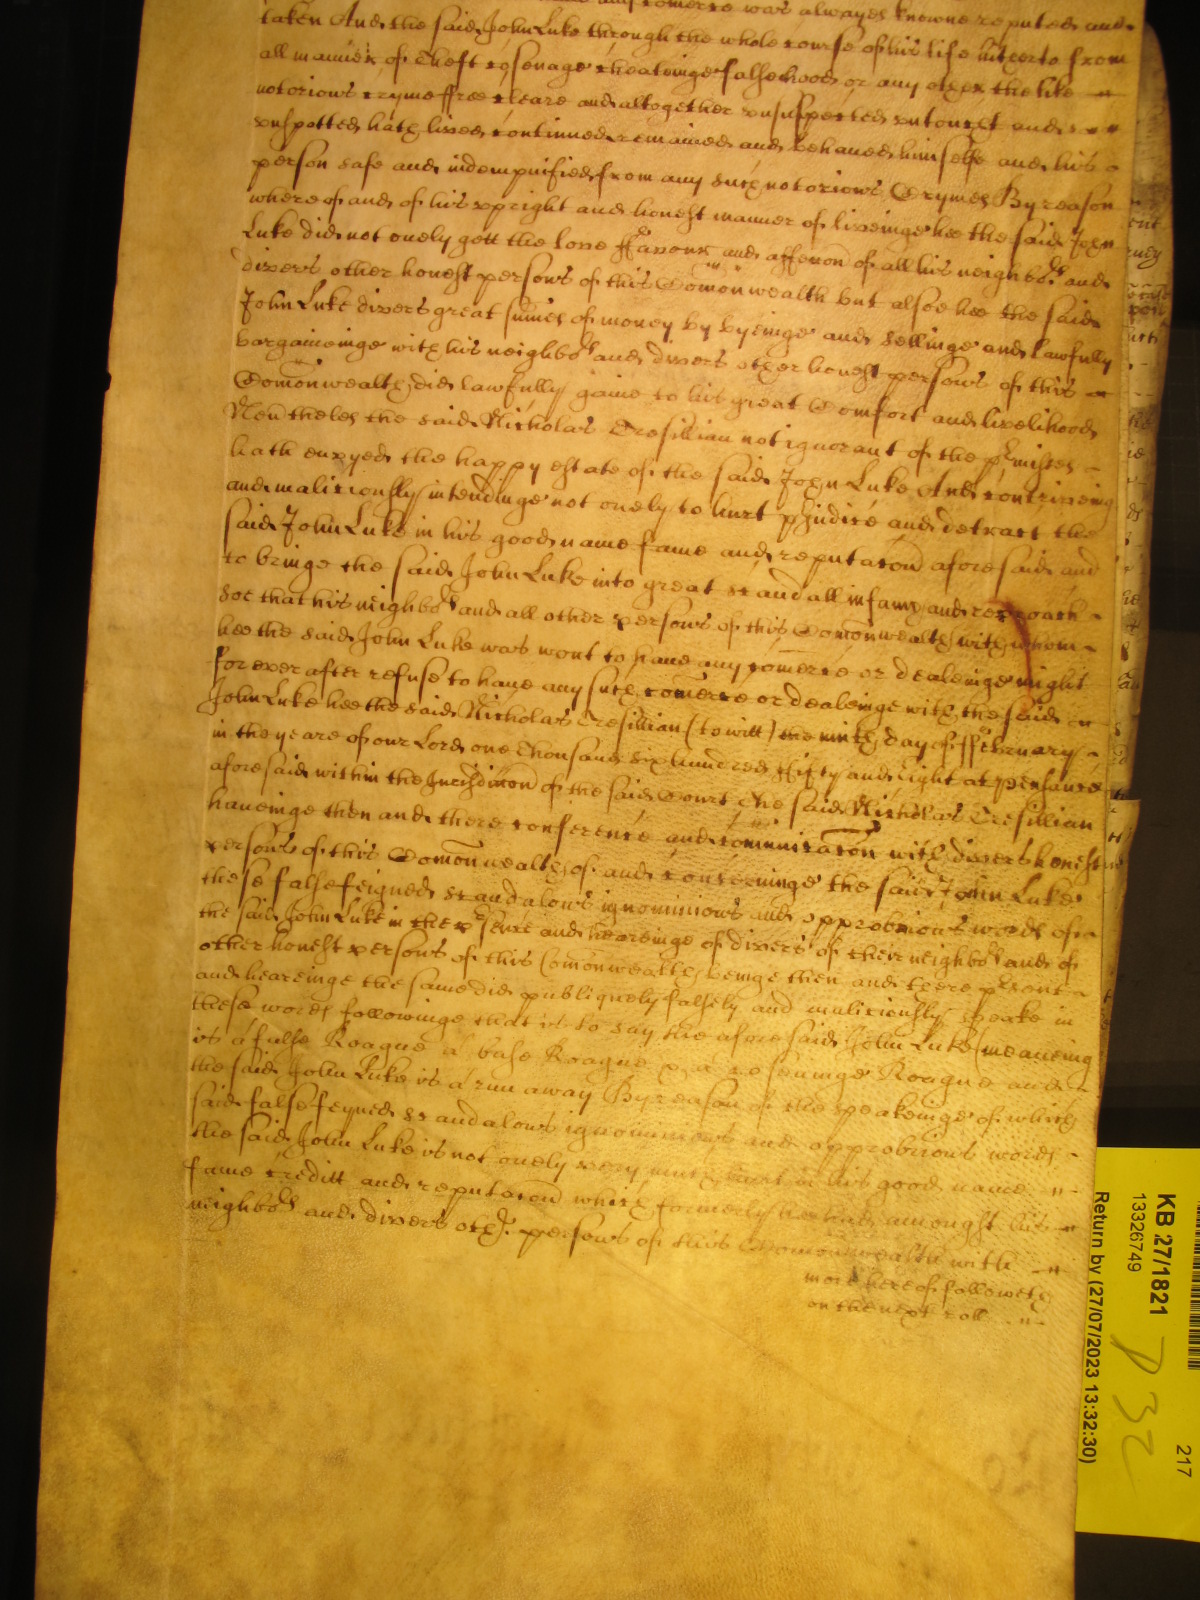 any comerce was alwayes knowne reputed and
taken And the said John Luke through the whole course of his life hitherto from
all manner of Theft cosenage cheateinge falsehood or any other the like
notorious cryme ffree cleare and altogether unsuspected untoucht and
unspotted hath lived continued remained and behaved himselfe and his
person safe and indempnified from any such notorious Crymes By reason
whereof and of his upright and honest manner of liveinge hee the said John
Luke did not onely gett the love ffavour and affeccon of all his neighbors and
divers other honest persons of this Comonwealth but alsoe hee the said
John Luke divers great sumes of money by byeinge and sellinge and lawfully
bargaineinge with his neighbors and divers other honest persons of this
Comonwealth did lawfully gaine to his great Comfort and livelihood
Nevertheles the said Nicholas Tresillian not ignorant of the premisses
hath envyed the happy estate of the said John Luke And contriveing
and maliciously intendinge not onely to hurt prejudice and detract the
said John Luke in his good name fame and reputacon aforesaid and
to bringe the said John Luke into great scandall infamy and reproach
soe that his neighbors and all other persons of this Comonwealth with whom
hee the said John Luke was wont to have any comerce or dealeinge might
for ever after refuse to have any such comerce or dealeinge with the said
John Luke hee the said Nicholas Tresillian (to witt) the ninth day of ffebruary
in the yeare of our Lord one thousand six hundred ffifty and eight at Pensance
aforesaid within the Jurisdiccon of the said Court The said Nicholas Tresillian
haveinge then and there conference and comunicacon with divers honest
persons of this Comonwealth of and concerninge the said John Luke
these false feigned scandalous ignominious and opprobrious words of
the said John Luke in the presence and heareinge of divers of their neighbors and of
other honest persons of this Comonwealth beinge then and there present
and heareinge the same did publiquely falsely and maliciously speake in
these words followinge that is to say the aforesaid John Luke (meaneing
is a false Roague a base Roague a coseninge Roague and
the said John Luke is a run away By reason of the speakeinge of which
said false feyned scandalous ignominious and opprobrious words
the said John Luke is not onely very much hurt in his good name
fame creditt and reputacon which formerly he had amongst his
neighbors and divers other persons of this Comonwealth with
more hereof followeth
on the next roll
KB 27/1821
13326749
217
Return by (27/07/2023 13:32:30)
P 32